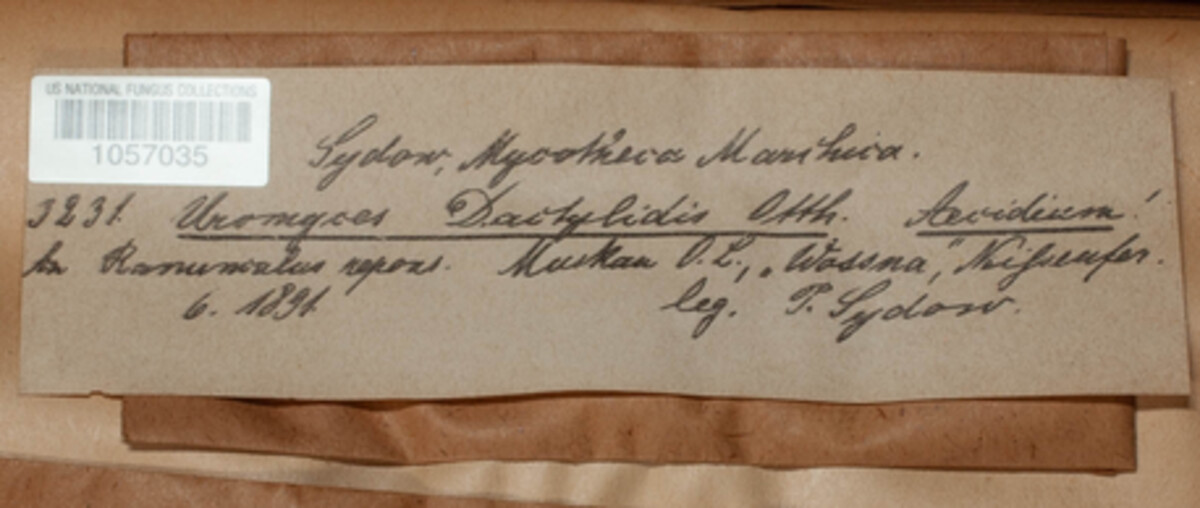 US NATIONAL FUNGUS COLLECTIONS
1057035
Sydow, Mycotheca Marchica.
3231. Uromyces Dactylidis Otth. Aecidium!
An Ranunculus repens. Muskau O. L., „Wossna", Neißeufer.
6. 1891. leg. P. Sydow.